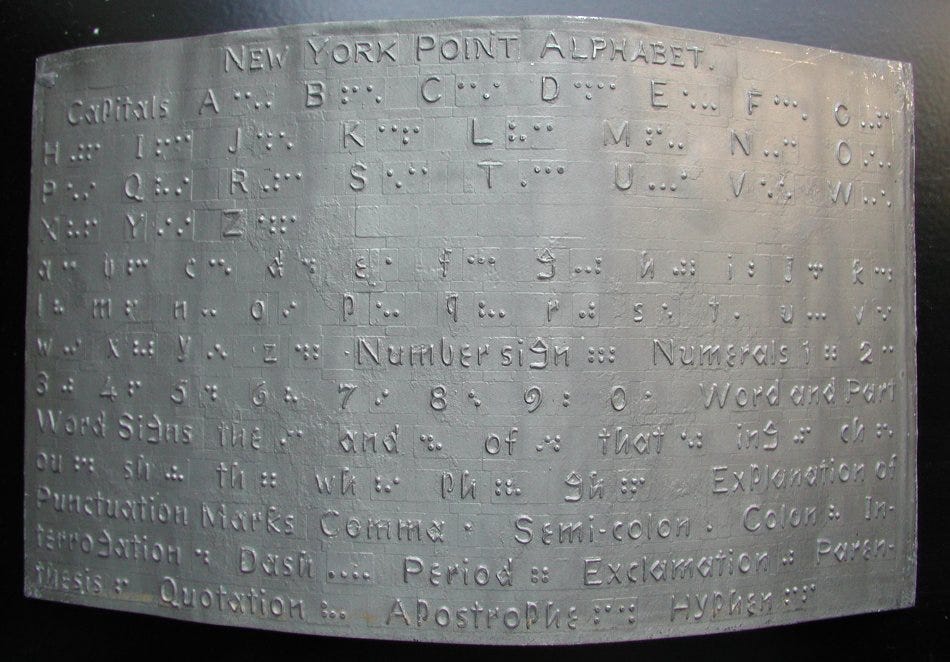 NEW YORK POINT ALPHABET.
Capitals A B C D E F G
H I J K L M N O
P Q R S T U V W
X Y Z
a b c d e f g h i j k
l m n o p q r s t u v
w x y z Number sign Numerals 1 2
3 4 5 6 7 8 9 0 Word and Part
Word Signs the and of that ing ch
ou sh th wh ph gh Explanation of
Punctuation Marks Comma Semi-colon Colon In-
terrogation Dash Period Exclamation Paren-
thesis Quotation Apostrophe Hyphen